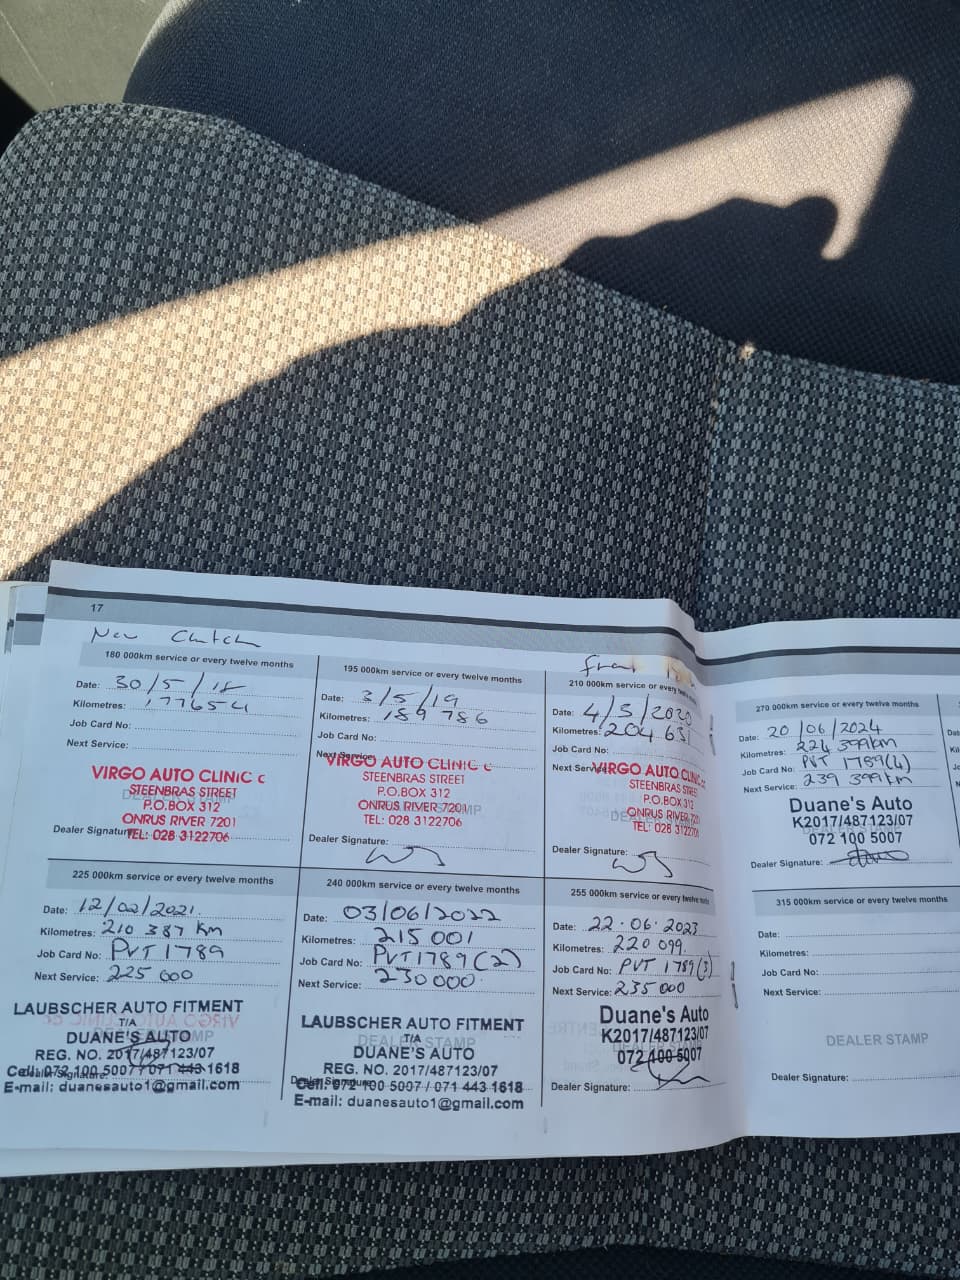 17
New Clutch
180 000km service or every twelve months
Date: 30/5/18
Kilometres: 177654
Job Card No:
Next Service:
VIRGO AUTO CLINIC c
STEENBRAS STREET
P.O.BOX 312
ONRUS RIVER 7201
TEL: 028 3122706
DEALER STAMP
Dealer Signature:
195 000km service or every twelve months
Date: 3/5/19
Kilometres: 189 786
Job Card No:
Next Service:
VIRGO AUTO CLINIC c
STEENBRAS STREET
P.O.BOX 312
ONRUS RIVER 7201
TEL: 028 3122706
Dealer Signature:
210 000km service or every twelve months
Date: 4/3/2020
Kilometres: 204 631
Job Card No:
Next Service:
VIRGO AUTO CLINIC cc
STEENBRAS STREET
P.O.BOX 312
ONRUS RIVER 7201
TEL: 028 3122706
Dealer Signature:
225 000km service or every twelve months
Date: 12/02/2021.
Kilometres: 210 387 km
Job Card No: PVT 1789
Next Service: 225 000
LAUBSCHER AUTO FITMENT
T/A
DUANE'S AUTO
REG. NO. 2017/487123/07
Cell: 072 100 5007 / 071 443 1618
E-mail: duanesauto1@gmail.com
Dealer Signature:
240 000km service or every twelve months
Date: 03/06/2022
Kilometres: 215 001
Job Card No: PVT1789(2)
Next Service: 230000.
LAUBSCHER AUTO FITMENT
T/A
DUANE'S AUTO
REG. NO. 2017/487123/07
Cell: 072 100 5007 / 071 443 1618
E-mail: duanesauto1@gmail.com
Dealer Signature:
255 000km service or every twelve months
Date: 22.06.2023
Kilometres: 220 099.
Job Card No: PVT 1789(3)
Next Service: 235 000
Duane's Auto
K2017/487123/07
072 100 5007
Dealer Signature:
270 000km service or every twelve months
Date: 20/06/2024
Kilometres: 224 399km
Job Card No: PVT 1789(4)
Next Service: 239 399km
Duane's Auto
K2017/487123/07
072 100 5007
Dealer Signature:
315 000km service or every twelve months
Date:
Kilometres:
Job Card No:
Next Service:
DEALER STAMP
Dealer Signature: